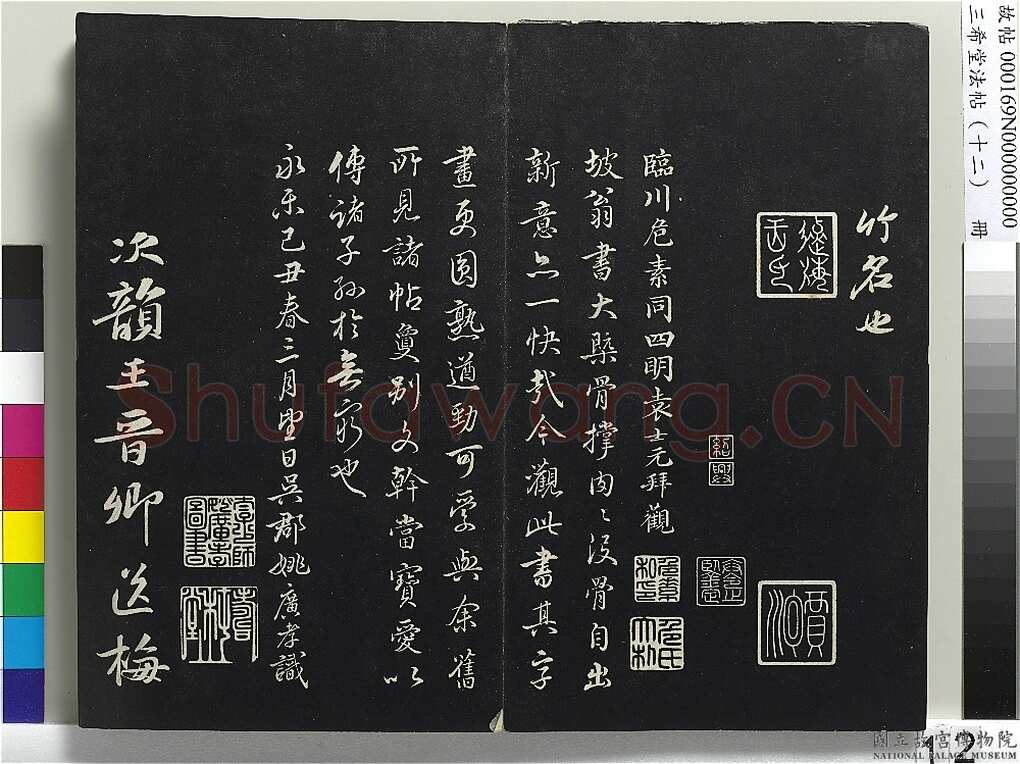 竹名也
臨川危素同四明袁士元拜觀
坡翁書大槩骨撑肉肉沒骨自出
新意亦一快哉今觀此書其字
畫更圓熟遒勁可愛與余舊
所見諸帖敻別文幹當寶愛以
傳諸子孫於無窮也
永樂己丑春三月望日吳郡姚廣孝識
次韻王晉卿送梅
紹興
危素
故帖 000169N000000000
三希堂法帖(十二) 冊
Shufawang.CN
國立故宮博物院
NATIONAL PALACE MUSEUM
12